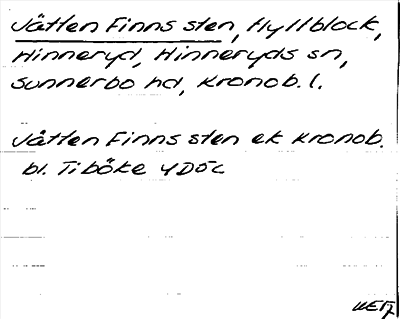 Jätten Finns sten, flyttblock,
Hinneryd, Hinneryds sn,
Sunnerbo hd, Kronob. l.
Jätten Finns sten ek Kronob.
bl. Tiböke 4D5c